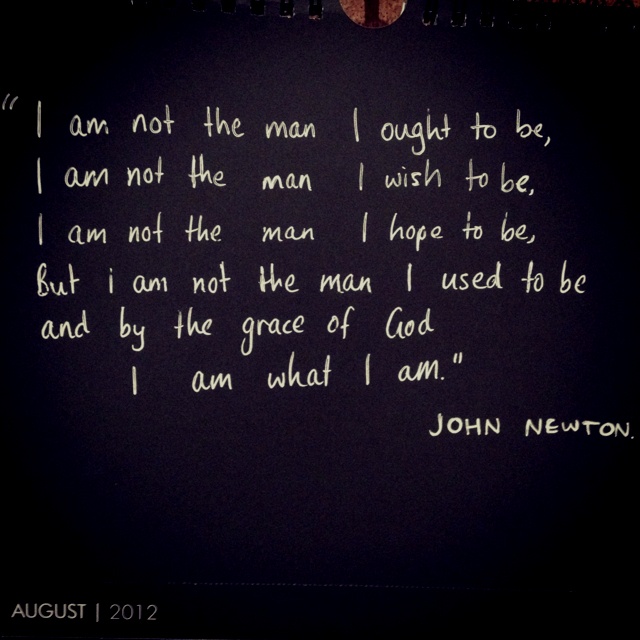 “I am not the man I ought to be,
I am not the man I wish to be,
I am not the man I hope to be,
But i am not the man I used to be
and by the grace of God
I am what I am."
JOHN NEWTON.
AUGUST | 2012